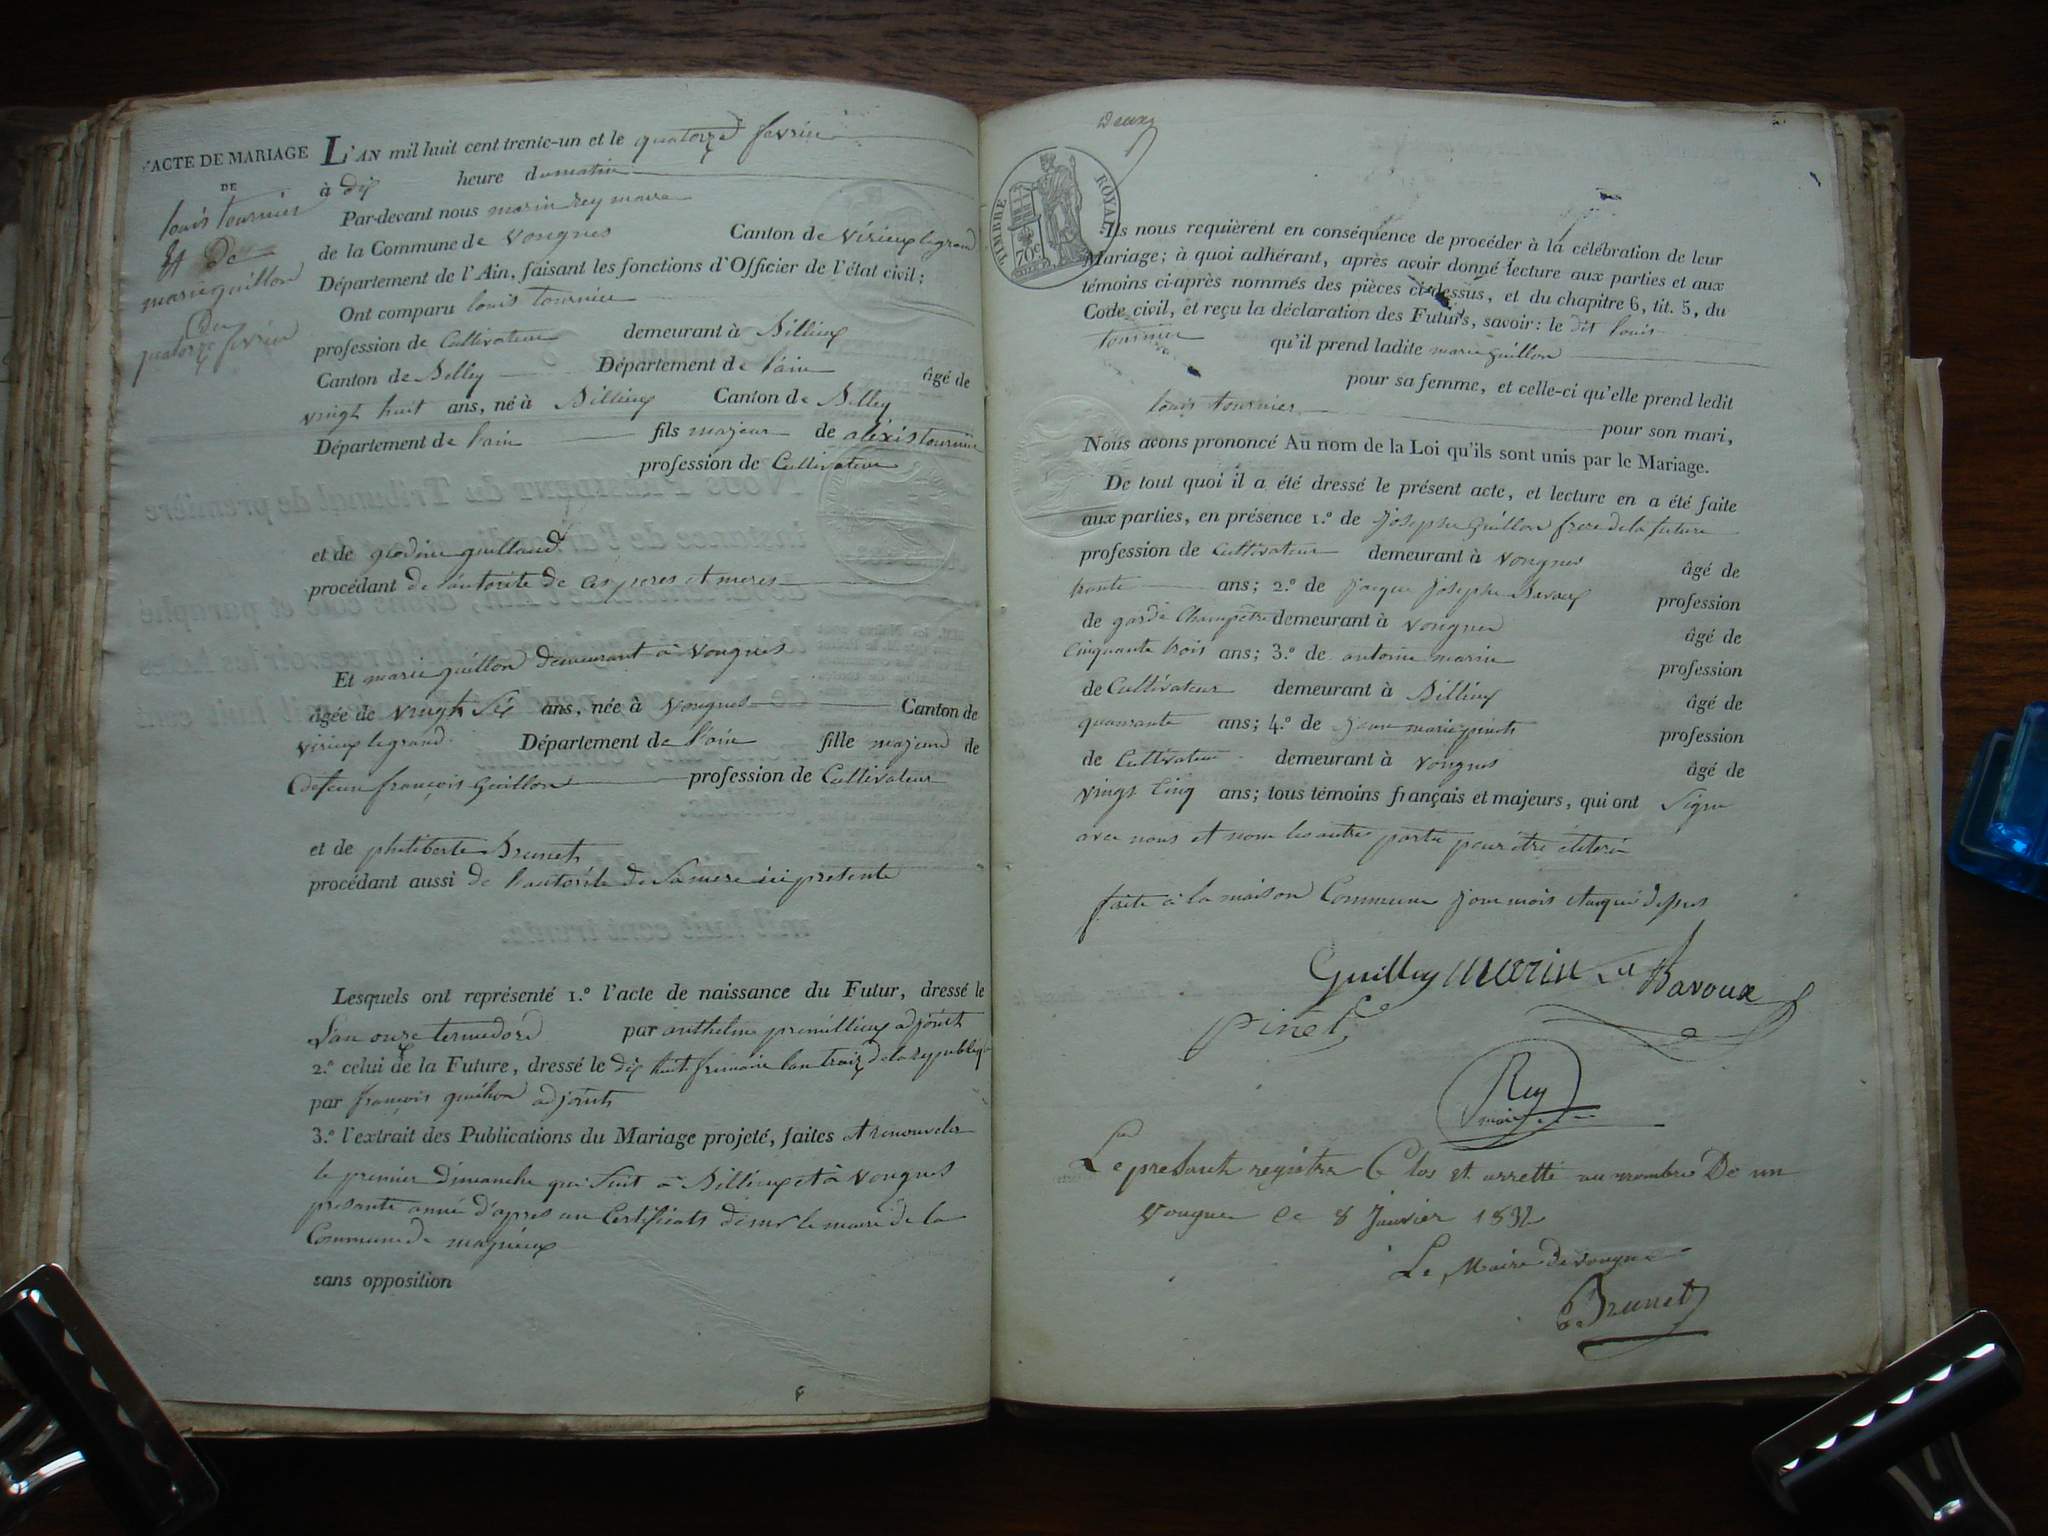 ACTE DE MARIAGE
DE
louis tournier
Et De
marie guillon
du
quatorze fevrier
L'AN mil huit cent trente-un et le quatorze fevrier
à dix heure du matin
Par-devant nous marin rey maire
de la Commune de Vongnes Canton de Virieux legrand
Département de l'Ain, faisant les fonctions d'Officier de l'état civil:
Ont comparu louis tournier
profession de Cultivateur demeurant à Billieux
Canton de Belley Département de l'ain âgé de
vingt huit ans, né à Billieux Canton de Belley
Département de l'ain fils majeur de alexis tournier
profession de Cultivateur
et de guilland
procédant de lautorité de ces peres et meres
Et marie guillon demeurant à Vongnes
âgée de vingt Six ans, née à Vongnes Canton de
Virieux legrand Département de l'ain fille majeure de
defeun françois Guillon profession de Cultivateur
et de philiberte Brunet
procédant aussi de l'autorité de Sa mere ici presente
Lesquels ont représenté 1.º l'acte de naissance du Futur, dressé le
L'an onze termedore par anthelme premillieux adjoint
2.º celui de la Future, dressé le dix huit frimaire lan traiz de la republique
par françois guillon adjoint
3.º l'extrait des Publications du Mariage projeté, faites et renouveler
le premier dimanche qui Suit à Billieux et à Vongnes
presante année d'apres un Certificats de mr le maire de la
Commune de magnieux
sans opposition
Deux
TIMBRE ROYAL
70c
Ils nous requièrent en conséquence de procéder à la célébration de leur
Mariage; à quoi adhérant, après avoir donné lecture aux parties et aux
témoins ci-après nommés des pièces ci-dessus, et du chapitre 6, tit. 5, du
Code civil, et reçu la déclaration des Futurs, savoir: le dit louis
tournier qu'il prend ladite marie guillon
pour sa femme, et celle-ci qu'elle prend ledit
louis tournier pour son mari,
Nous avons prononcé Au nom de la Loi qu'ils sont unis par le Mariage.
De tout quoi il a été dressé le présent acte, et lecture en a été faite
aux parties, en présence 1.º de Joseph Guillon frere de la future
profession de Cultivateur demeurant à Vongnes âgé de
trante ans; 2.º de Jacque Joseph Bavoux profession
de garde Champetre demeurant à Vongnes âgé de
Cinquante trois ans; 3.º de antoine marin profession
de Cultivateur demeurant à Billieux âgé de
quanrante ans; 4.º de Jean marie pinet profession
de Cultivateur demeurant à Vongnes âgé de
Vingt Cinq ans; tous témoins français et majeurs, qui ont Signe
avec nous et nom les autres partie pour être
faite à la maison Commune jour mois et anque dessus
Guillon marin Bavoux
pinet
Rey
maire
Le presant registre Clos et arretté au nombre De un
Vongne le 8 Janvier 1832
Le Maire de vongne
Brunet